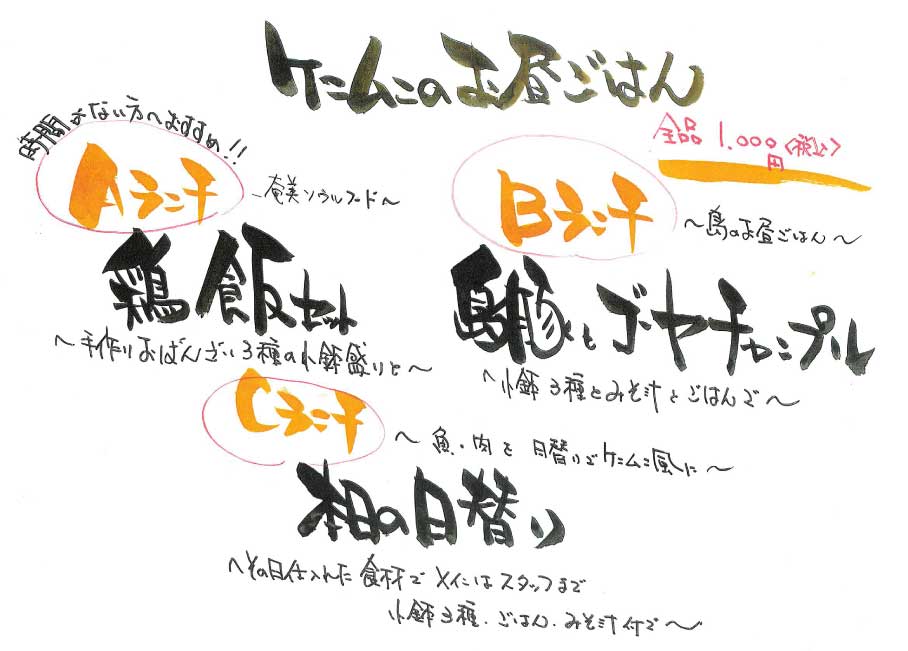 ケンムンのお昼ごはん
全品 1,000円〈税込〉
時間がない方へおすすめ!!
Aランチ
～奄美ソウルフード～
鶏飯セット
～手作りおばんざい3種の小鉢盛りと～
Bランチ
～島のお昼ごはん～
島豚とゴーヤチャンプル
～小鉢3種とみそ汁とごはんで～
Cランチ
～魚・肉を日替りでケンムン風に～
本日の日替り
～その日仕入れた食材でメインはスタッフまで
小鉢3種.ごはん.みそ汁付で～